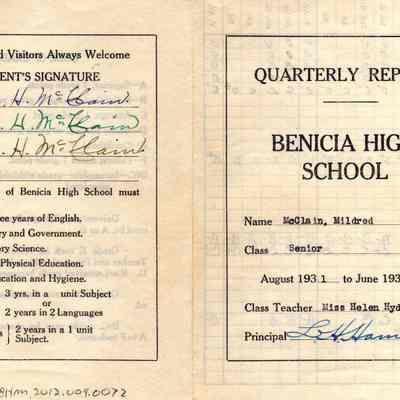 d Visitors Always Welcome
ENT'S SIGNATURE
H. McClain.
H. McClain
H. McClain
of Benicia High School must
ee years of English.
ry and Government.
ory Science.
Physical Education.
cation and Hygiene.
3 yrs. in a unit Subject
or
2 years in 2 Languages
s } 2 years in a 1 unit
Subject.
2012.009.0072
QUARTERLY REP
BENICIA HIG
SCHOOL
Name McClain, Mildred
Class Senior
August 1931 to June 193
Class Teacher Miss Helen Hyd
Principal